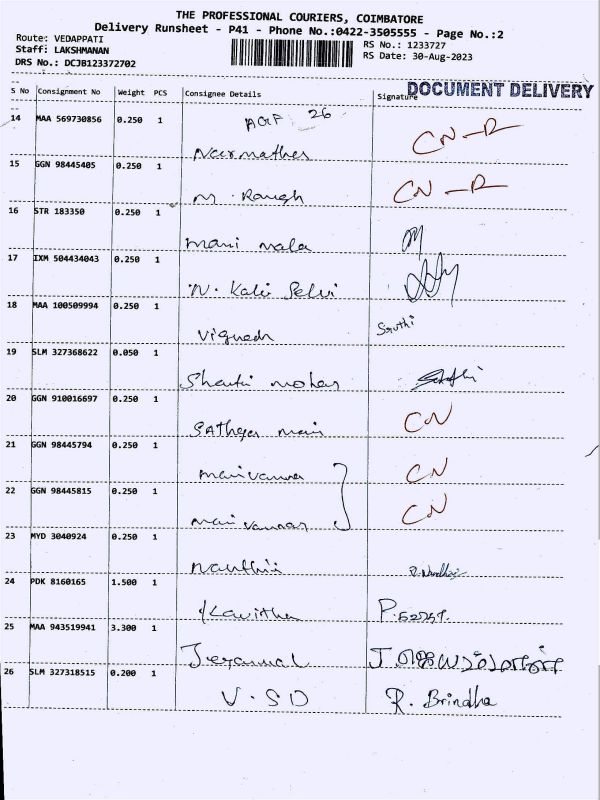 THE PROFESSIONAL COURIERS, COIMBATORE
Delivery Runsheet - P41 - Phone No.:0422-3505555 - Page No.:2
Route: VEDAPPATI
Staff: LAKSHMANAN
DRS No.: DCJB123372702
RS No.: 1233727
RS Date: 30-Aug-2023
DOCUMENT DELIVERY
S No Consignment No Weight PCS Consignee Details Signature
14 MAA 569730856 0.250 1 26 CN-R
15 GGN 98445405 0.250 1 CN-R
16 STR 183350 0.250 1 mani mala
17 IXM 504434043 0.250 1 N. Kalai Selvi
18 MAA 100509994 0.250 1 Vignesh
19 SLM 327368622 0.050 1 Shanti mohan
20 GGN 910016697 0.250 1 Sathya mani CN
21 GGN 98445794 0.250 1 CN
22 GGN 98445815 0.250 1 mani vannan CN
23 MYD 3040924 0.250 1 Nanthini
24 PDK 8160165 1.500 1 Kavitha
25 MAA 943519941 3.300 1
26 SLM 327318515 0.200 1 V.SD R. Brindha